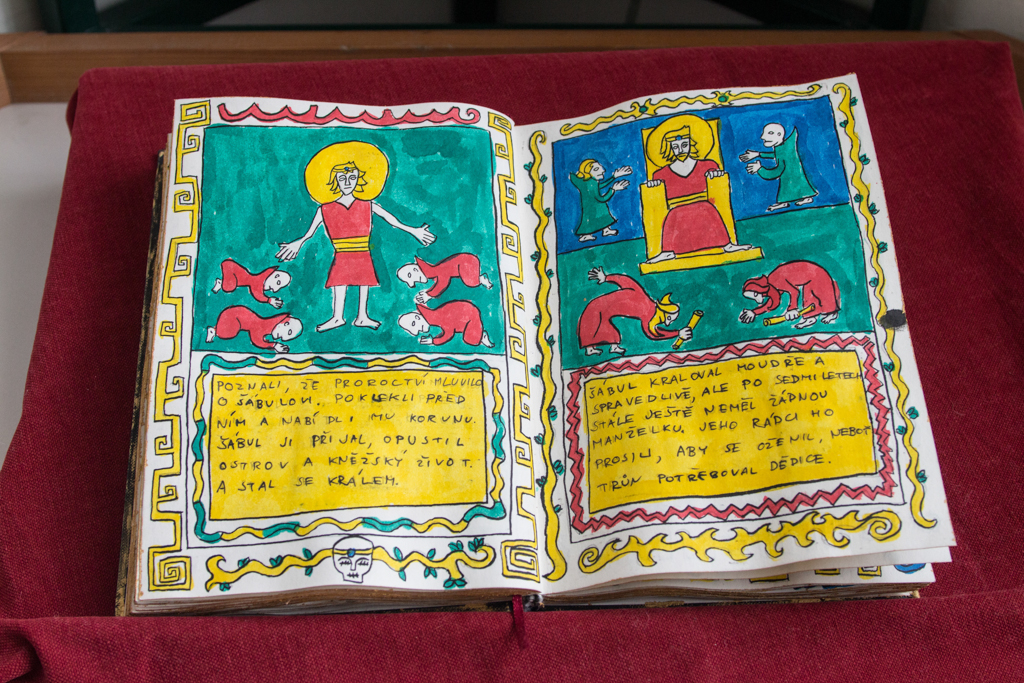 POZNALI, ŽE PROROCTVÍ MLUVILO
O ŠÁBULOVI. POKLEKLI PŘED
NÍM A NABÍDLI MU KORUNU.
ŠÁBUL JI PŘIJAL, OPUSTIL
OSTROV A KNĚŽSKÝ ŽIVOT.
A STAL SE KRÁLEM.
ŠÁBUL KRALOVAL MOUDŘE A
SPRAVEDLIVĚ, ALE PO SEDMI LETECH
STÁLE JEŠTĚ NEMĚL ŽÁDNOU
MANŽELKU. JEHO RÁDCI HO
PROSILI, ABY SE OŽENIL, NEBOŤ
TRŮN POTŘEBOVAL DĚDICE.